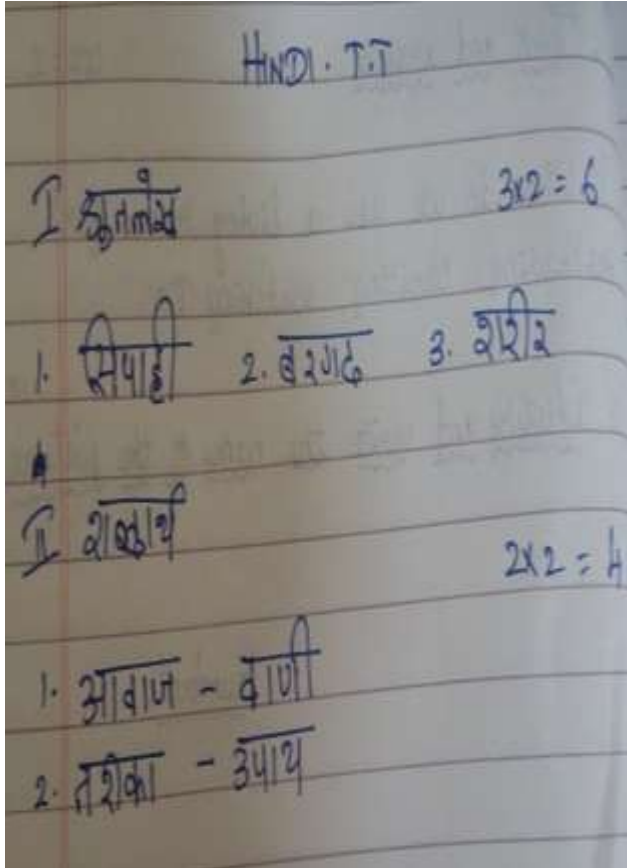 HINDI. T.T
I श्रुतलेख 3x2 = 6
1. सिपाही 2. बरगद 3. शरीर
II शब्दार्थ 2x2 = 4
1. आवाज - वाणी
2. तरीका - उपाय